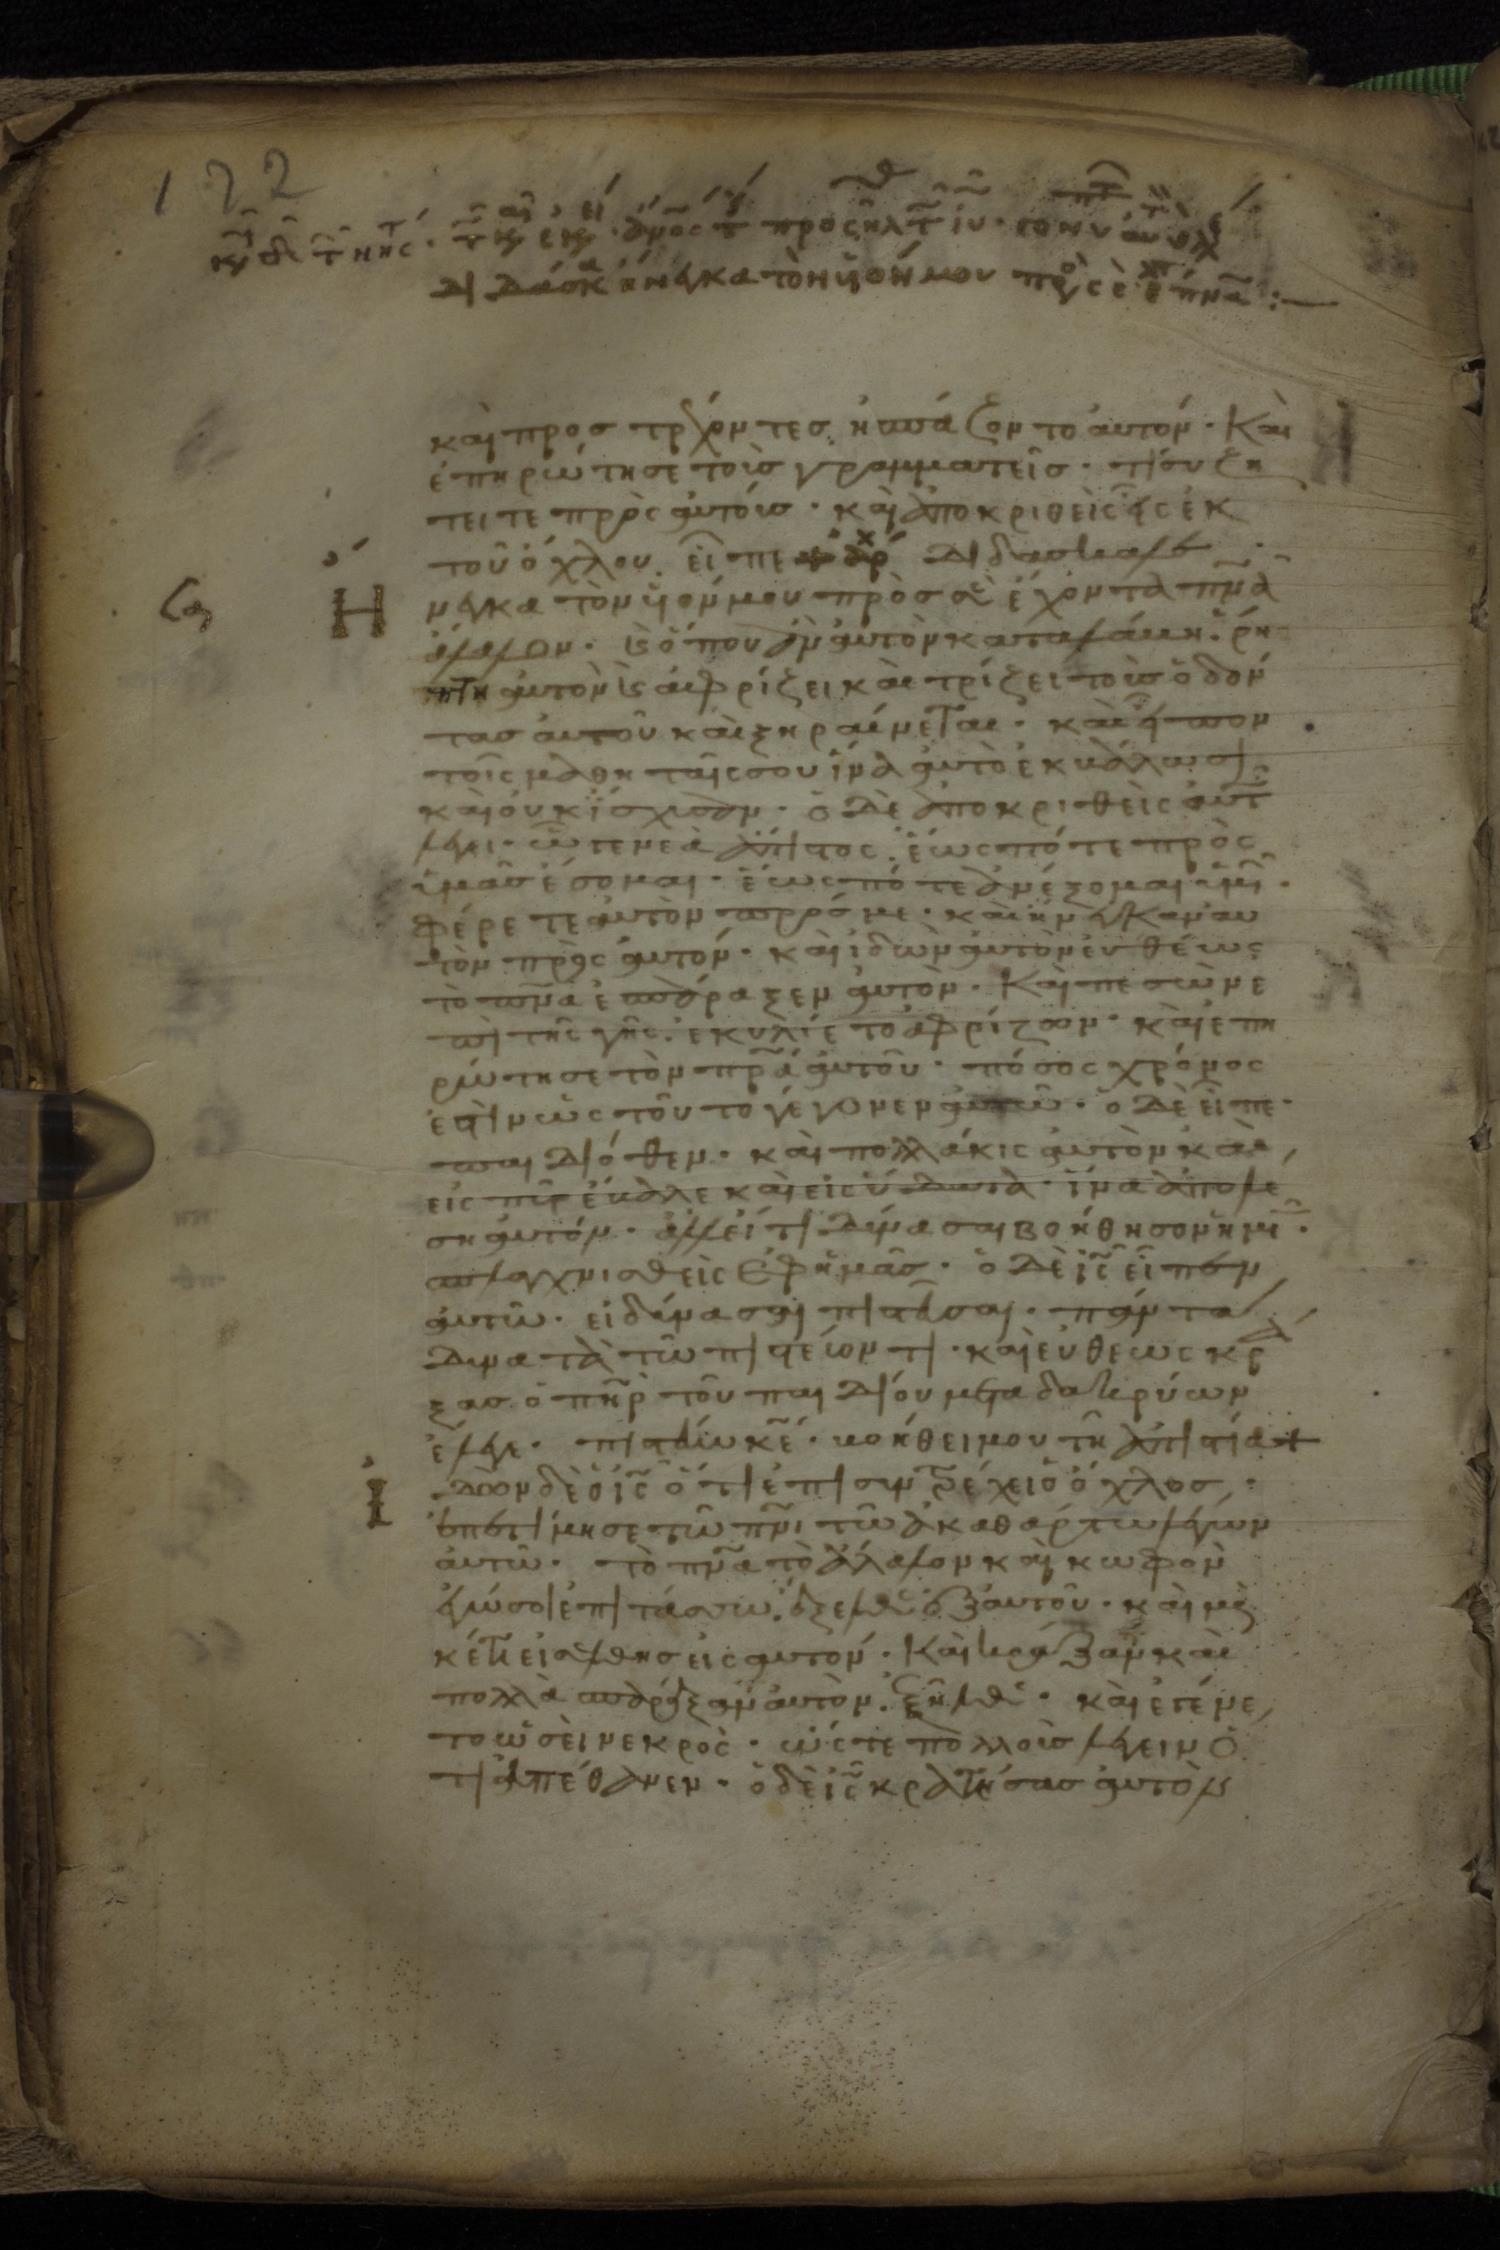 122
διδάσκ ἤνεγκα τὸν υἱόν μου πρός σε ἔχ πνα :—
και προστρέχοντες ἠσπάζοντο αυτόν · Και
ἐπηρώτησε τοὺς γραμματεῖς · τί συζη
τειτε πρὸς αυτούς · και ἀποκριθεὶς εἷς ἐκ
τοῦ ὄχλου εἶπε διδάσκαλε
Η νεγκα τὸν υἱόν μου πρὸς σὲ ἔχοντα πνα
ἄλαλον · και ὅπου ἂν αυτὸν καταλάβη · ρή
αυτὸν και ἀφρίζει και τρίζει τοὺς ὀδόν
τας αυτοῦ και ξηραίνεται · και εἶπον
τοῖς μαθηταῖς σου ἵνα αυτὸ ἐκβάλωσι
και οὐκ ἴσχυσαν · ὁ δὲ ἀποκριθεὶς αυτ
λέγει · ὦ γενεὰ ἄπιστος · ἕως πότε πρὸς
ὑμᾶς ἔσομαι · ἕως πότε ἀνέξομαι ὑμ ·
φέρετε αυτὸν πρός με · και ἤνεγκαν αυ
τὸν πρὸς αυτόν · και ἰδὼν αυτὸν ευθέως
τὸ πνα ἐσπάραξεν αυτὸν · Και πεσὼν ε
πὶ τῆς γῆς · ἐκυλίετο ἀφρίζων · και ἐπη
ρώτησε τὸν πρα αυτοῦ · πόσος χρόνος
ἐστὶν ὡς τοῦτο γέγονεν αυτῶ · ὁ δὲ εἶπε ·
παιδιόθεν · και πολλάκις αυτὸν και
εἰς πῦρ ἔβαλε και εἰς ὕδατα · ἵνα ἀπολέ
ση αυτόν · ἀλλ εἴ τι δύνασαι βοήθησον ἡμῖ ·
σπλαγχνισθεὶς ἐφ ἡμᾶς · ὁ δὲ ις εἶπεν
αυτῶ · εἰ δύνασαι πιστεῦσαι · πάντα
δυνατὰ τῶ πιστεύοντι · και εὐθέως κρά
ξας ὁ πηρ τοῦ παιδίου μετα δακρύων
ἔλεγε · πιστεύω κε · βοήθει μου τῆ ἀπιστία
Ι δὼν δὲ ὁ ις ὅτι ἐπισυντρέχει ὁ ὄχλος ·
ἐπετίμησε τῶ πνι τῶ ἀκαθάρτω λέγων
αυτῶ · τὸ πνα τὸ ἄλαλον και κωφὸν
ἐγώ σοι ἐπιτάσσω · ἔξελθε ἐξ αυτοῦ · και μη
κέτι εἰσέλθης εἰς αυτόν · Και κράξαν και
πολλὰ σπαράξαν αυτὸν · ἐξῆλθε · και ἐγένε
το ὡσεὶ νεκρὸς · ὥστε πολλοὺς λέγειν ὅ
τι ἀπέθανεν · ὁ δὲ ις κρατήσας αυτὸν